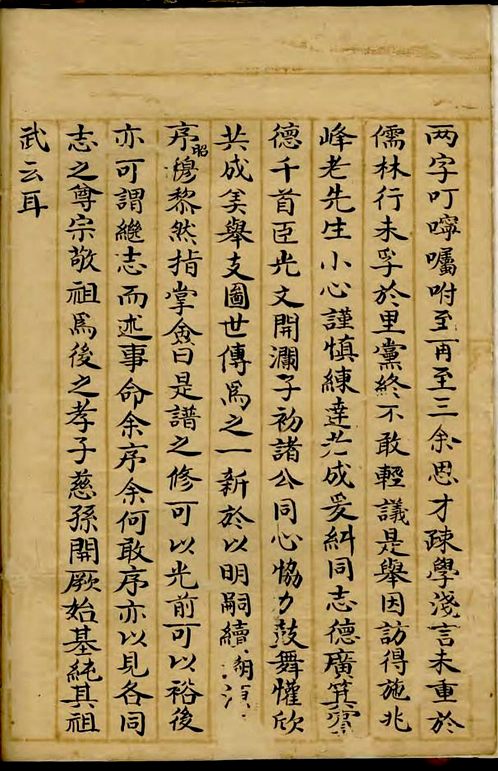 两字叮嚀囑咐至再至三余思才疎學淺言未重於
儒林行未孚於里黨終不敢輕議是舉因訪得施兆
峰老先生小心謹慎練達老成爰糾同志德廣箕
德千首臣光文開瀾子初諸公同心恊力鼓舞懽欣
共成美舉支圖世傳爲之一新於以明嗣續
序昭穆黎然指掌僉曰是譜之修可以光前可以裕後
亦可謂繼志而述事命余序余何敢序亦以見各同
志之尊宗敬祖爲後之孝子慈孫開厥始基純其祖
武云耳